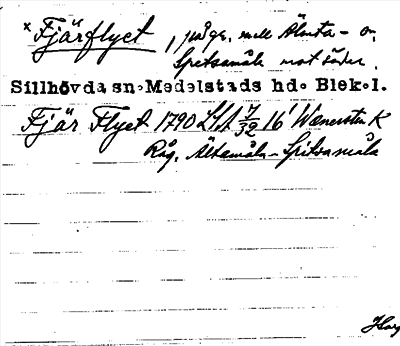 × Fjärflyet, judgr. mell Älmta- o.
Spetsamåla mot söder.
Sillhövda sn. Medelstads hd. Blek. l.
Fjär Flyet 1790 LSA 7/32 16 Wænersten K
Råg. Ältamåla - Spitsamåla